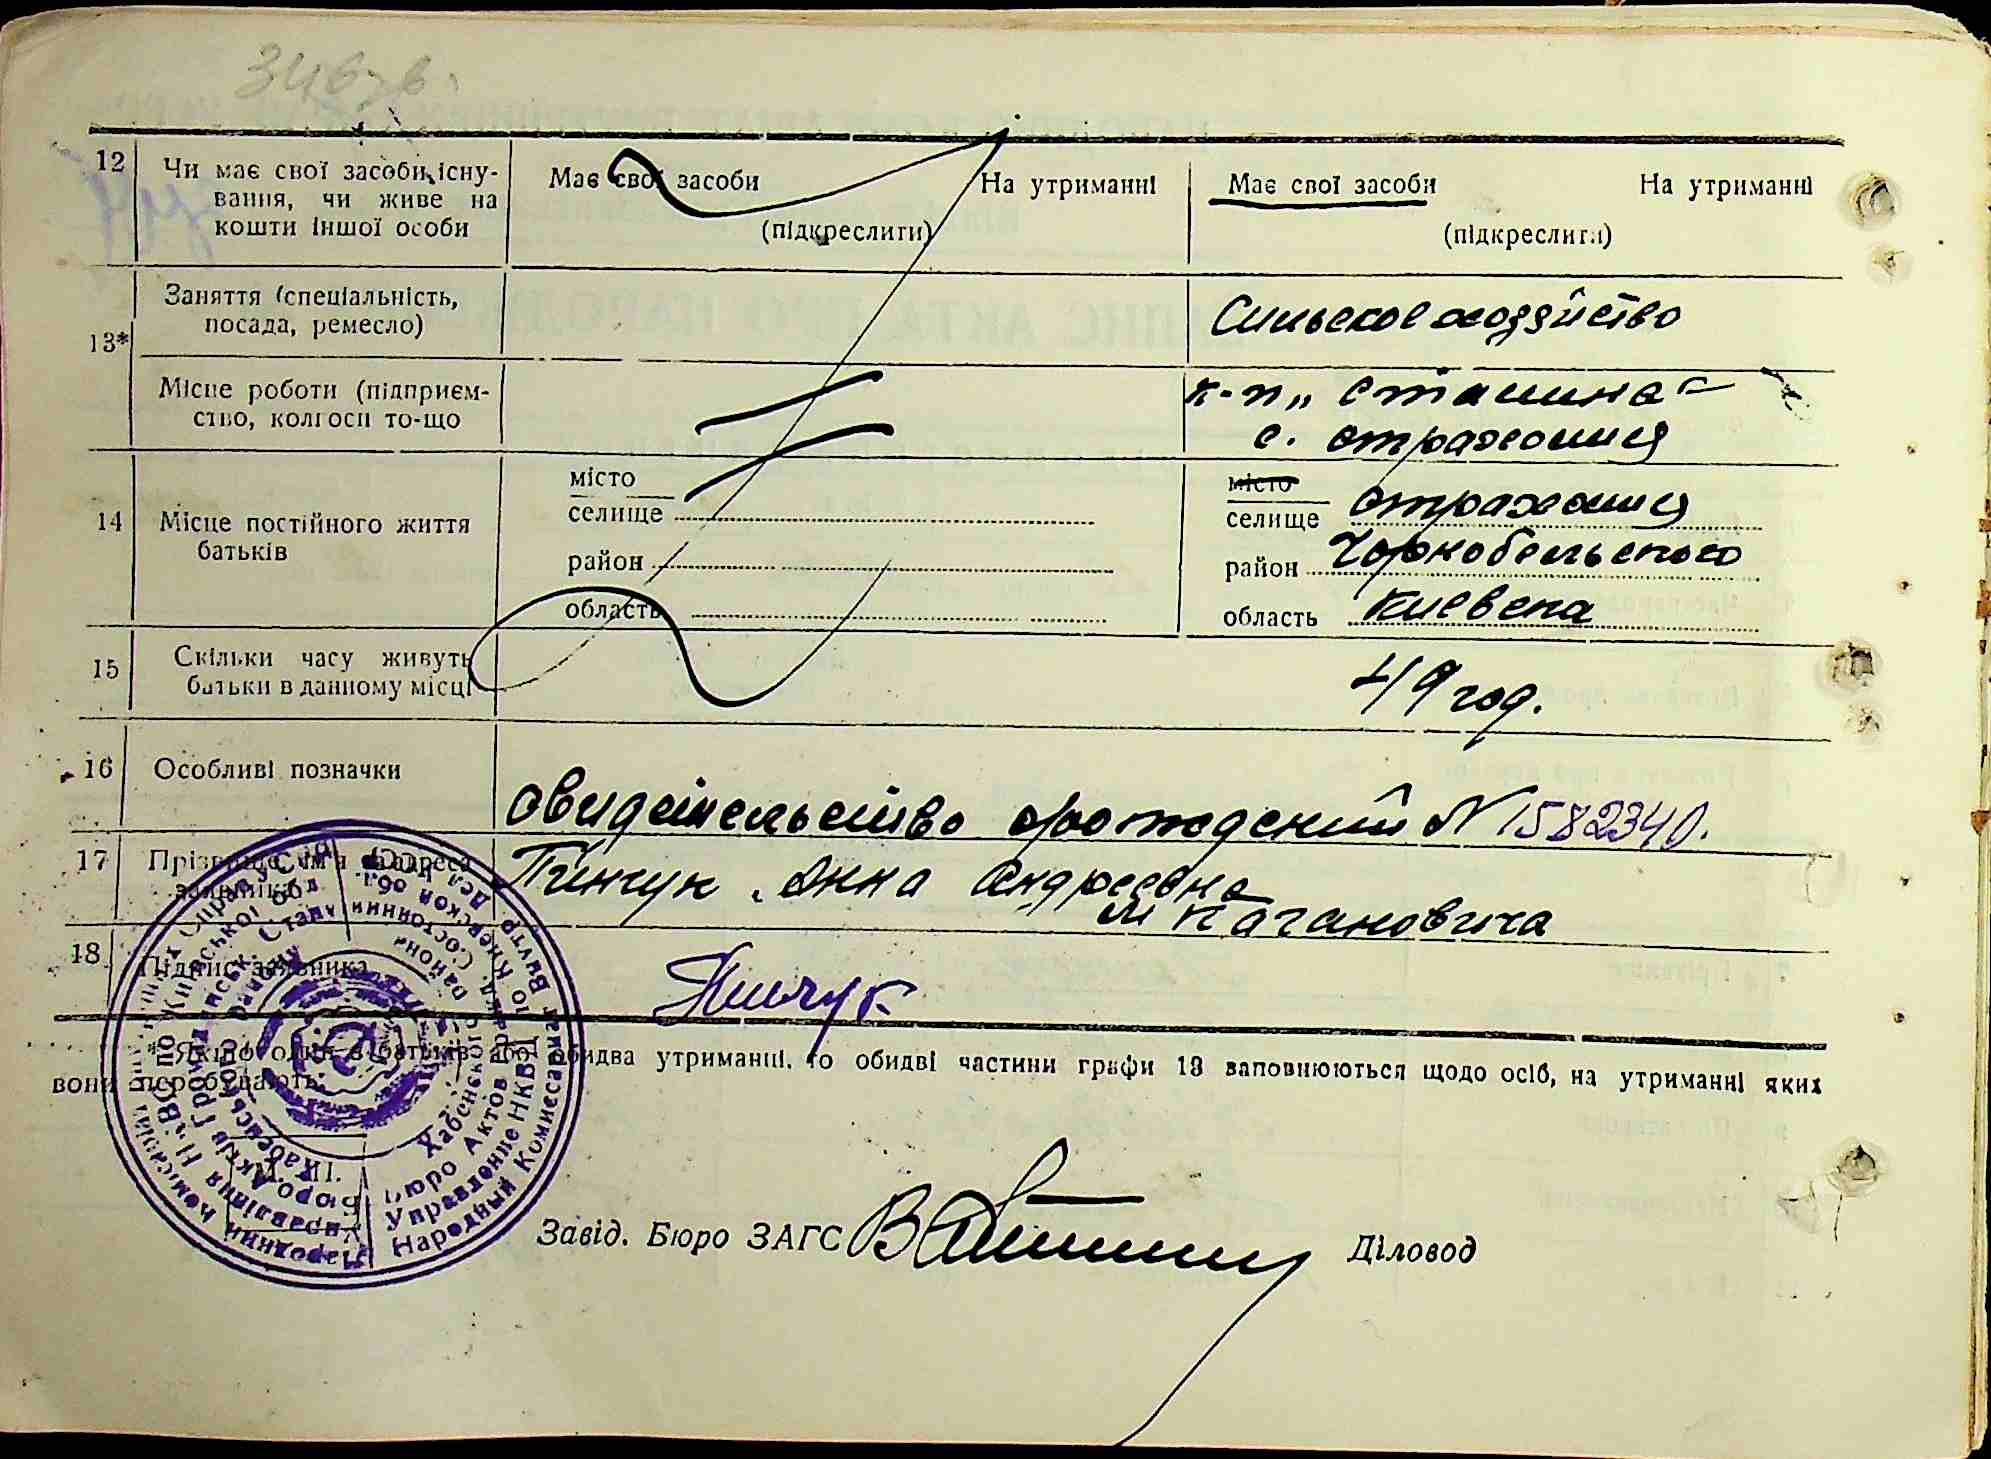 12 Чи має свої засоби існу-
вання, чи живе на
кошти іншої особи
Має свої засоби На утриманні
(підкреслити)
Має свої засоби На утриманні
(підкреслити)
13*
Заняття (спеціальність,
посада, ремесло)
Сильское хозяйство
Місце роботи (підприєм-
ство, колгосп то-що
к-п „ Сталина
с. Страхолися
14 Місце постійного життя
батьків
місто
селище
район
область
місто
селище Страхолися
район Чорнобельского
область Киевска
15 Скільки часу живуть
батьки в данному місці
49 год.
16 Особливі позначки
Свидетельство о рождений N 1582340.
17 Прізвище, ім'я та адреса
заявника
Пинчук Анна Андреевна
М Кагановича
18 Підпис заявника
Пинчук
* Якщо один з батьків або обидва утриманці, то обидві частини графи 13 заповнюються щодо осіб, на утриманні яких
вони перебувають.
М. П.
Завід. Бюро ЗАГС
Діловод